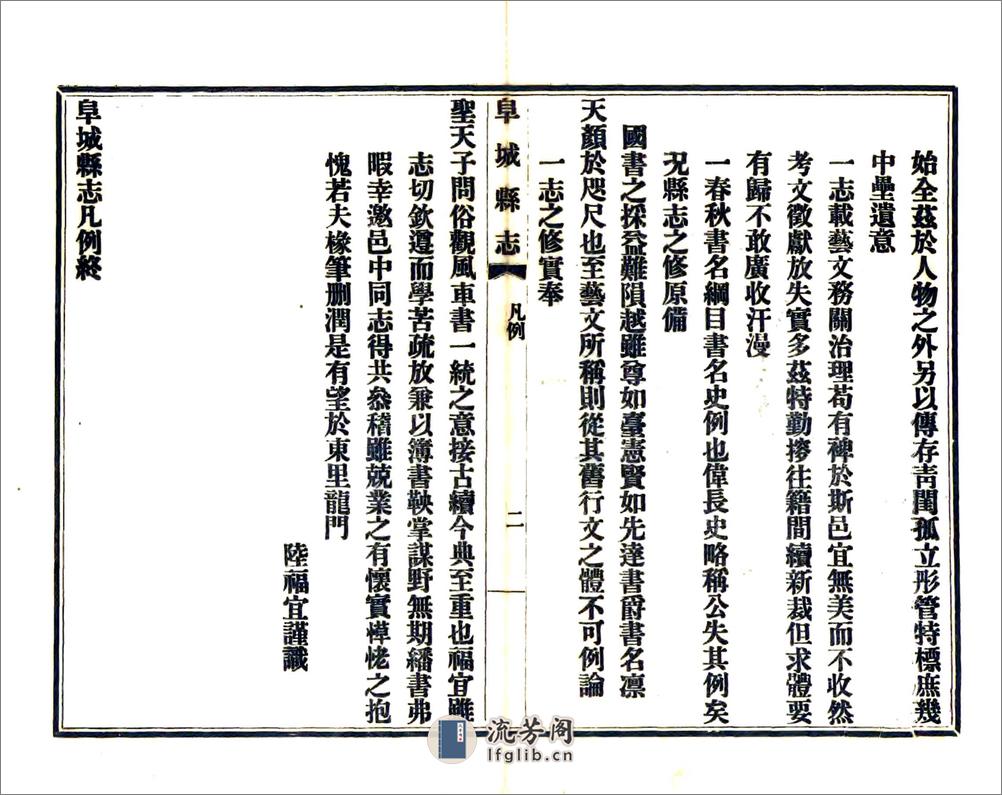 始全茲於人物之外另以傳存靑閨孤立彤管特標庶幾
中壘遺意
一志載藝文務關治理苟有裨於斯邑宜無美而不收然
考文徵獻放失實多茲特勤搜往籍間續新裁但求體要
有歸不敢廣收汗漫
一春秋書名綱目書名史例也偉長史略稱公失其例矣
况縣志之修原備
國書之採益難隕越雖尊如臺憲賢如先達書爵書名凛
天顏於咫尺也至藝文所稱則從其舊行文之體不可例論
一志之修實奉
阜城縣志
凡例
二
聖天子問俗觀風車書一統之意接古續今典至重也福宜雖
志切欽遵而學苦疏放兼以簿書鞅掌謀野無期繙書弗
暇幸邀邑中同志得共叅稽雖兢業之有懷實愽恅之抱
愧若夫椽筆删潤是有望於東里龍門
陸福宜謹識
阜城縣志凡例終
流芳阁
lfglib.cn